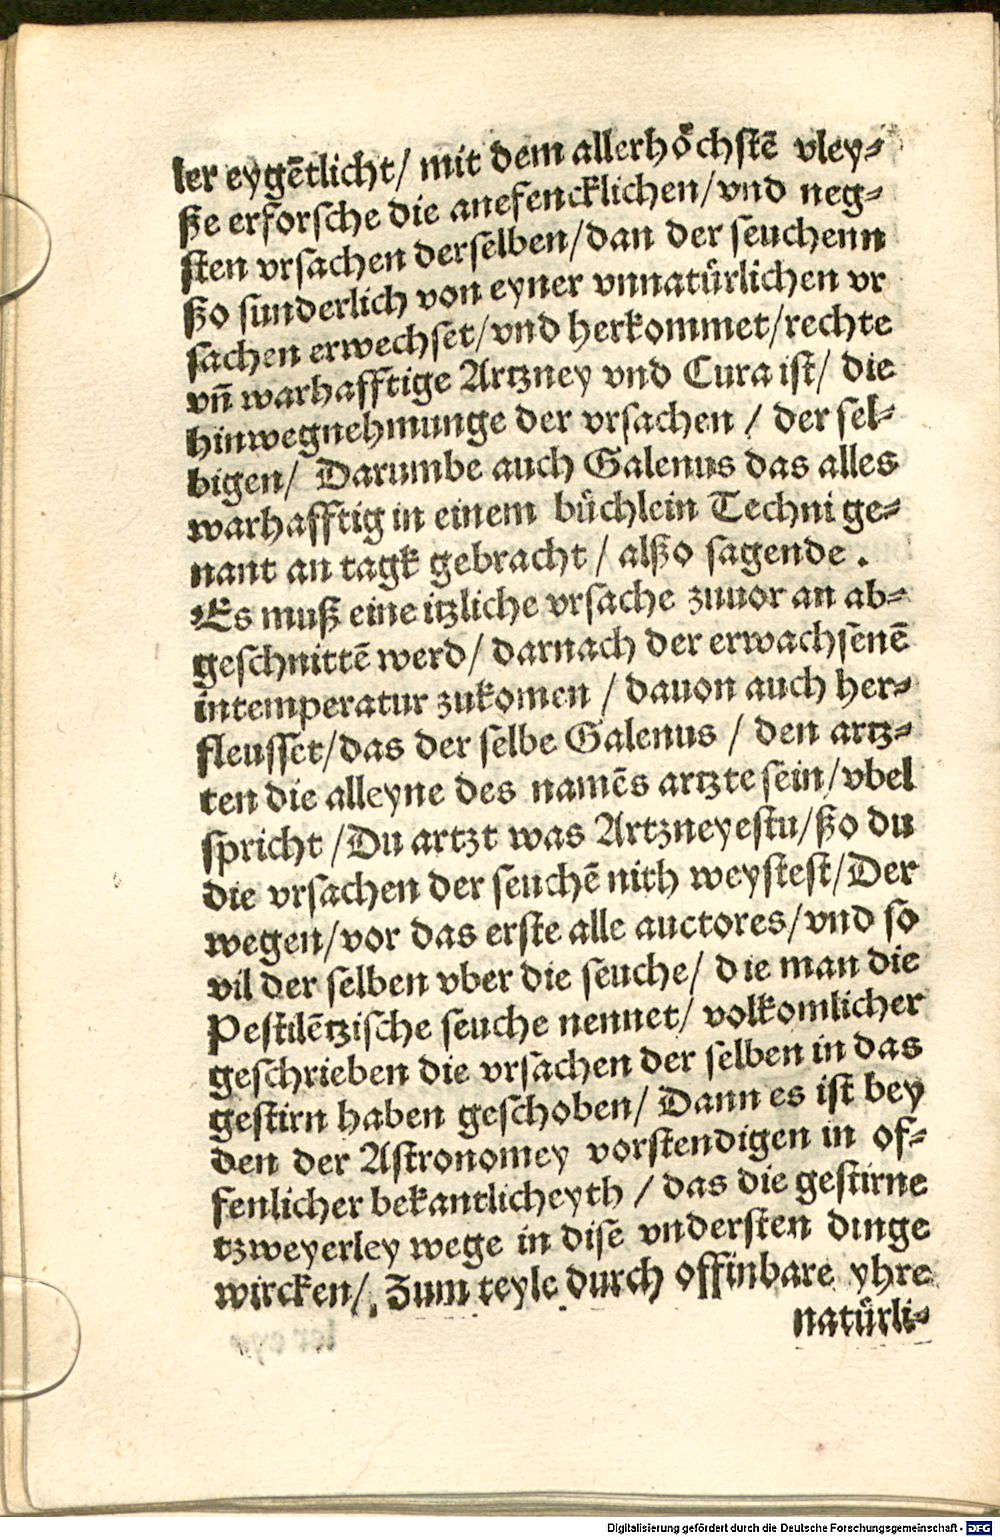 ler eygẽtlicht/ mit dem allerhoͤchstẽ vley⸗
ße erforsche die anefencklichen/vnd neg⸗
sten vrsachen derselben/dan der seuchenn
ßo sunderlich von eyner vnnatuͤrlichen vr
sachen erwechset/vnd herkommet/rechte
vñ warhafftige Artzney vnd Cura ist/ die
hinwegnehmunge der vrsachen / der sel⸗
bigen/ Darumbe auch Galenus das alles
warhafftig in einem buͤchlein Techni ge⸗
nant an tagk gebracht / alßo sagende .
Es muß eine itzliche vrsache zuuor an ab⸗
geschnittẽ werd/ darnach der erwachsenẽ
intemperatur zukomen / dauon auch her⸗
fleusset/das der selbe Galenus / den artz⸗
ten die alleyne des namẽs artzte sein/vbel
spricht /Du artzt was Artzneyestu/ßo du
die vrsachen der seuchẽ nith weystest/Der
wegen/vor das erste alle auctores/vnd so
vil der selben vber die seuche/ die man die
Pestilẽtzische seuche nennet/ volkomlicher
geschrieben die vrsachen der selben in das
gestirn haben geschoben/ Dann es ist bey
den der Astronomey vorstendigen in of⸗
fenlicher bekantlicheyth / das die gestirne
tzweyerley wege in dise vndersten dinge
wircken/ Zum teyle durch offinbare yhre
natuͤrli⸗
Digitalisierung gefördert durch die Deutsche Forschungsgemeinschaft - DFG